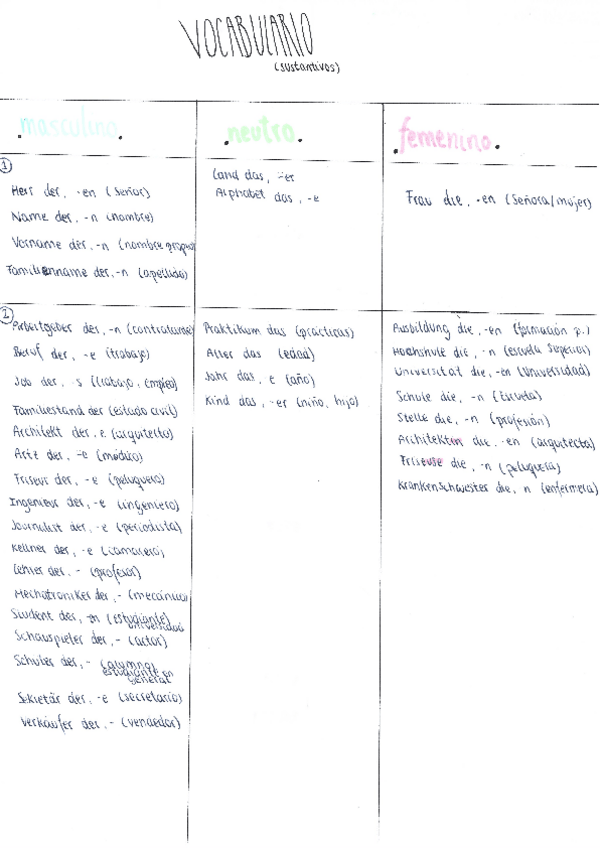 VOCABULARIO
(sustantivos)
masculino.
neutro.
femenino.
1
Herr der, -en (señor)
Name der, -n (nombre)
Vorname der, -n (nombre propio)
Familienname der, -n (apellido)
Land das, -̈er
Alphabet das, -e
Frau die, -en (señora/mujer)
2
Arbeitgeber der, -n (contratante)
Beruf der, -e (trabajo)
Job der, -s (trabajo, empleo)
Familiestand der (estado civil)
Architekt der, e (arquitecto)
Arzt der, -̈e (médico)
Friseur der, -e (peluquero)
Ingenieur der, -e (ingeniero)
Journalist der, -e (periodista)
Kellner der, -e (camarero)
Lehrer der, - (profesor)
Mechatroniker der, - (mecánico)
Student der, -en (estudiante)
universidad
Schauspieler der, - (actor)
Schüler der, - (alumno)
estudiante en
general
Sekretär der, -e (secretario)
Verkäufer der, - (vendedor)
Praktikum das (prácticas)
Alter das (edad)
Jahr das, e (año)
Kind das, -er (niño, hijo)
Ausbildung die, -en (formación p.)
Hochshule die, -n (escuela superior)
Universitat die, -en (universidad)
Schule die, -n (escuela)
Stelle die, -n (profesión)
Architekten die, -en (arquitecta)
Friseuse die, -n (peluquera)
Krankenschwester die, n (enfermera)